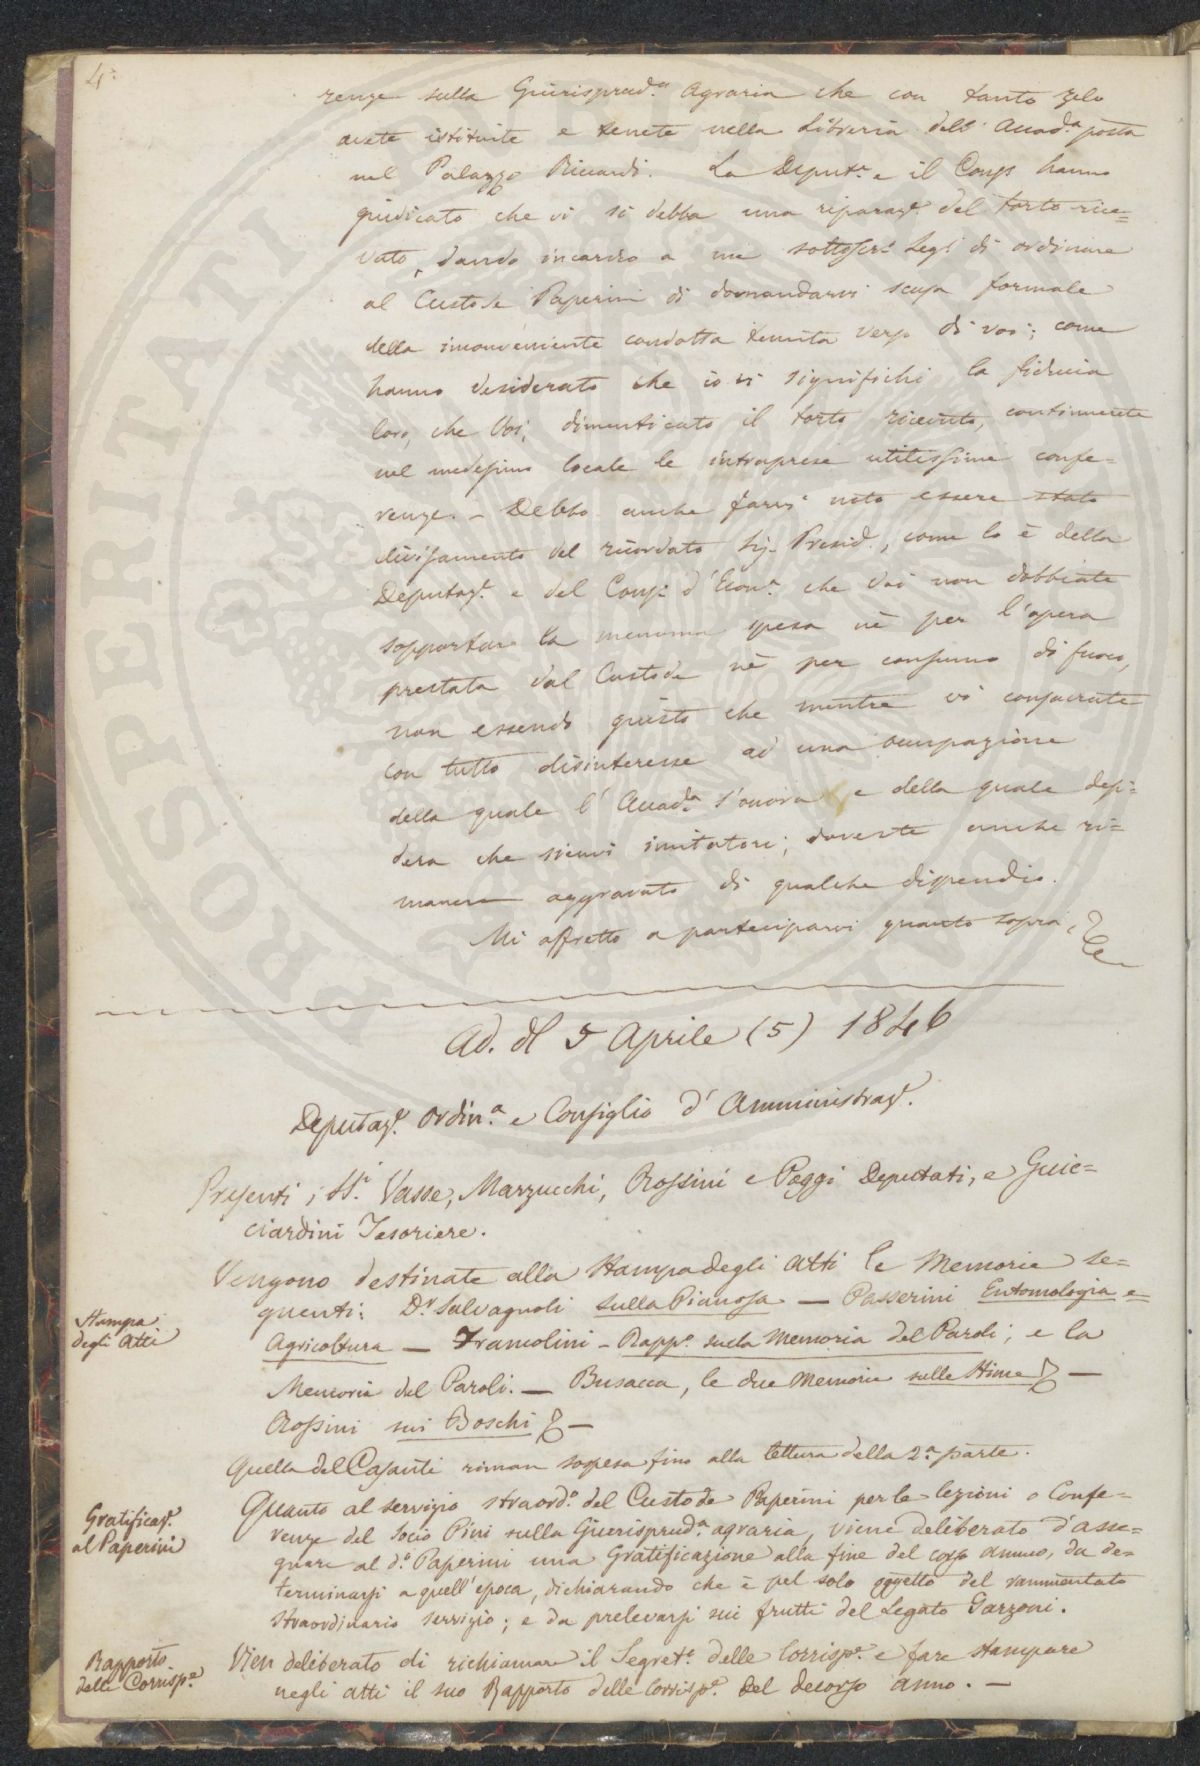 4.
renze sulla Giurisprud.a Agraria che con tanto zelo
avete istituite e tenete nella Libreria dell' Accad.a posta
nel Palazzo Riccardi. La Deput.e e il Cons.o hanno
giudicato che vi si debba una riparaz.e del torto rice=
vuto, dando incarico a me sottoscr.o Seg.o di ordinare
al Custode Paperini di domandarvi scusa formale
della inconveniente condotta tenuta verso di voi; come
hanno desiderato che io vi significhi la fiducia
loro, che Voi, dimenticato il torto ricevuto, continuerete
nel medesimo locale le intraprese utilissime confe=
renze. - Debbo anche farvi noto essere stato
divisamento del ricordato Sig. Presid.e, come lo è della
Deputaz.e e del Cons.o d'Econ.a che Voi non dobbiate
sopportare la menoma spesa nè per l'opera
prestata dal Custode nè per consumo di fuoco,
non essendo giusto che mentre vi consacrate
con tutto disinteresse ad una occupazione
della quale l'Accad.a s'onora, e della quale desi=
dera che sienvi imitatori; doveste anche ri=
manere aggravato di qualche dispendio.
Mi affretto a parteciparvi quanto sopra, &c
Ad. dì 5 Aprile (5) 1846
Deputaz.e Ordin.a e Consiglio d'Amministraz.e
Presenti i SS.i Vasse, Marzucchi, Rossini e Poggi Deputati, e Guic=
ciardini Tesoriere.
Stampa
degli Atti
Vengono destinate alla Stampa degli Atti le Memorie se=
guenti: D.r Salvagnoli sulla Pianosa — Passerini Entomologia e
Agricoltura — Franzolini - Rapp.o sulla Memoria del Paroli; e la
Memoria del Paroli. — Busacca, le due Memorie sulle Stime &c —
Rossini sui Boschi &c —
Quella del Casanti riman sospesa fino alla lettura della 2.a parte.
Gratificaz.e
al Paperini
Quanto al servizio straord.o del Custode Paperini per le lezioni o Confe=
renze del Socio Pini sulla Giurisprud.a agraria, viene deliberato d'asse=
gnare al d.o Paperini una Gratificazione alla fine del corso annuo, da de=
terminarsi a quell'epoca, dichiarando che è pel solo oggetto del rammentato
straordinario servizio; e da prelevarsi sui frutti del Legato Garzoni.
Rapporto
delle Corrisp.e
Vien deliberato di richiamare il Segret.o delle Corrisp.e e fare stampare
negli Atti il suo Rapporto delle Corrisp.e del decorso anno. —